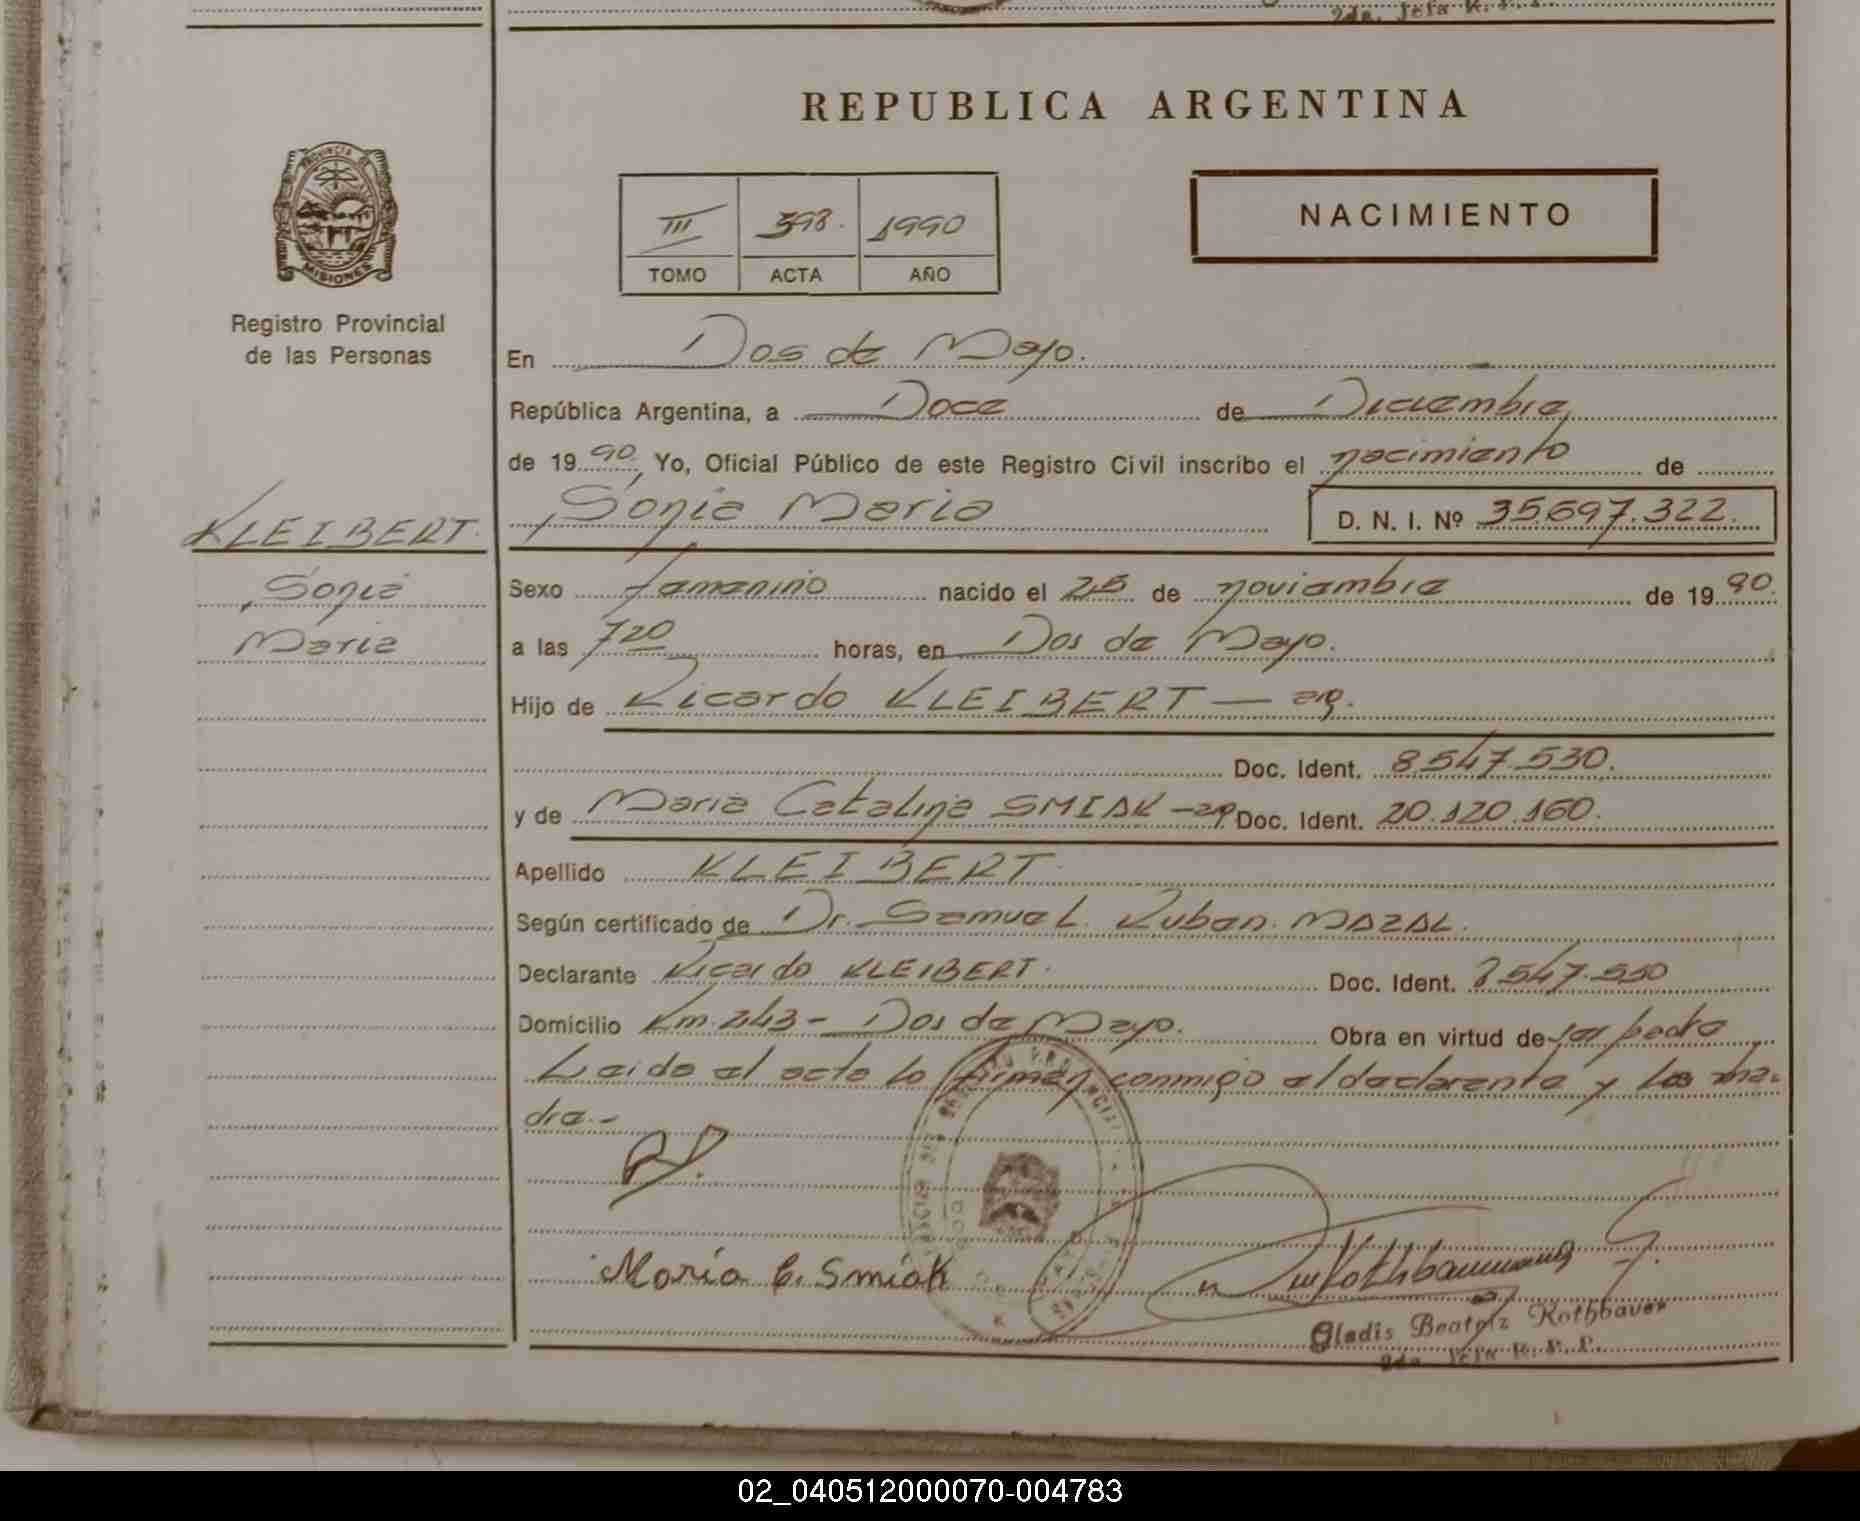 2da. Jefa R. P. P.
REPUBLICA ARGENTINA
PROVINCIA DE
MISIONES
Registro Provincial
de las Personas
III 398. 1990
TOMO ACTA AÑO
NACIMIENTO
En Dos de Mayo.
República Argentina, a Doce de Diciembre
de 19 90, Yo, Oficial Público de este Registro Civil inscribo el nacimiento de
Sonia Maria D. N. I. Nº 35.697.322.
KLEIBERT.
Sonia
Maria
Sexo femenino nacido el 25 de noviembre de 19 90.
a las 720 horas, en Dos de Mayo.
Hijo de Ricardo KLEIBERT — arg.
Doc. Ident. 8.547.530.
y de Maria Catalina SMIAK - arg. Doc. Ident. 20.120.160.
Apellido KLEIBERT.
Según certificado de Dr. Samuel Ruben MAZAL.
Declarante Ricardo KLEIBERT. Doc. Ident. 8547.530
Domicilio Km. 243 - Dos de Mayo. Obra en virtud de ser padre
Leida el acta lo firman conmigo el declarante y la ma-
dre.-
María C. Smiak
Gladis Beatriz Rothbauer
2da. Jefa R. P. P.
02_040512000070-004783